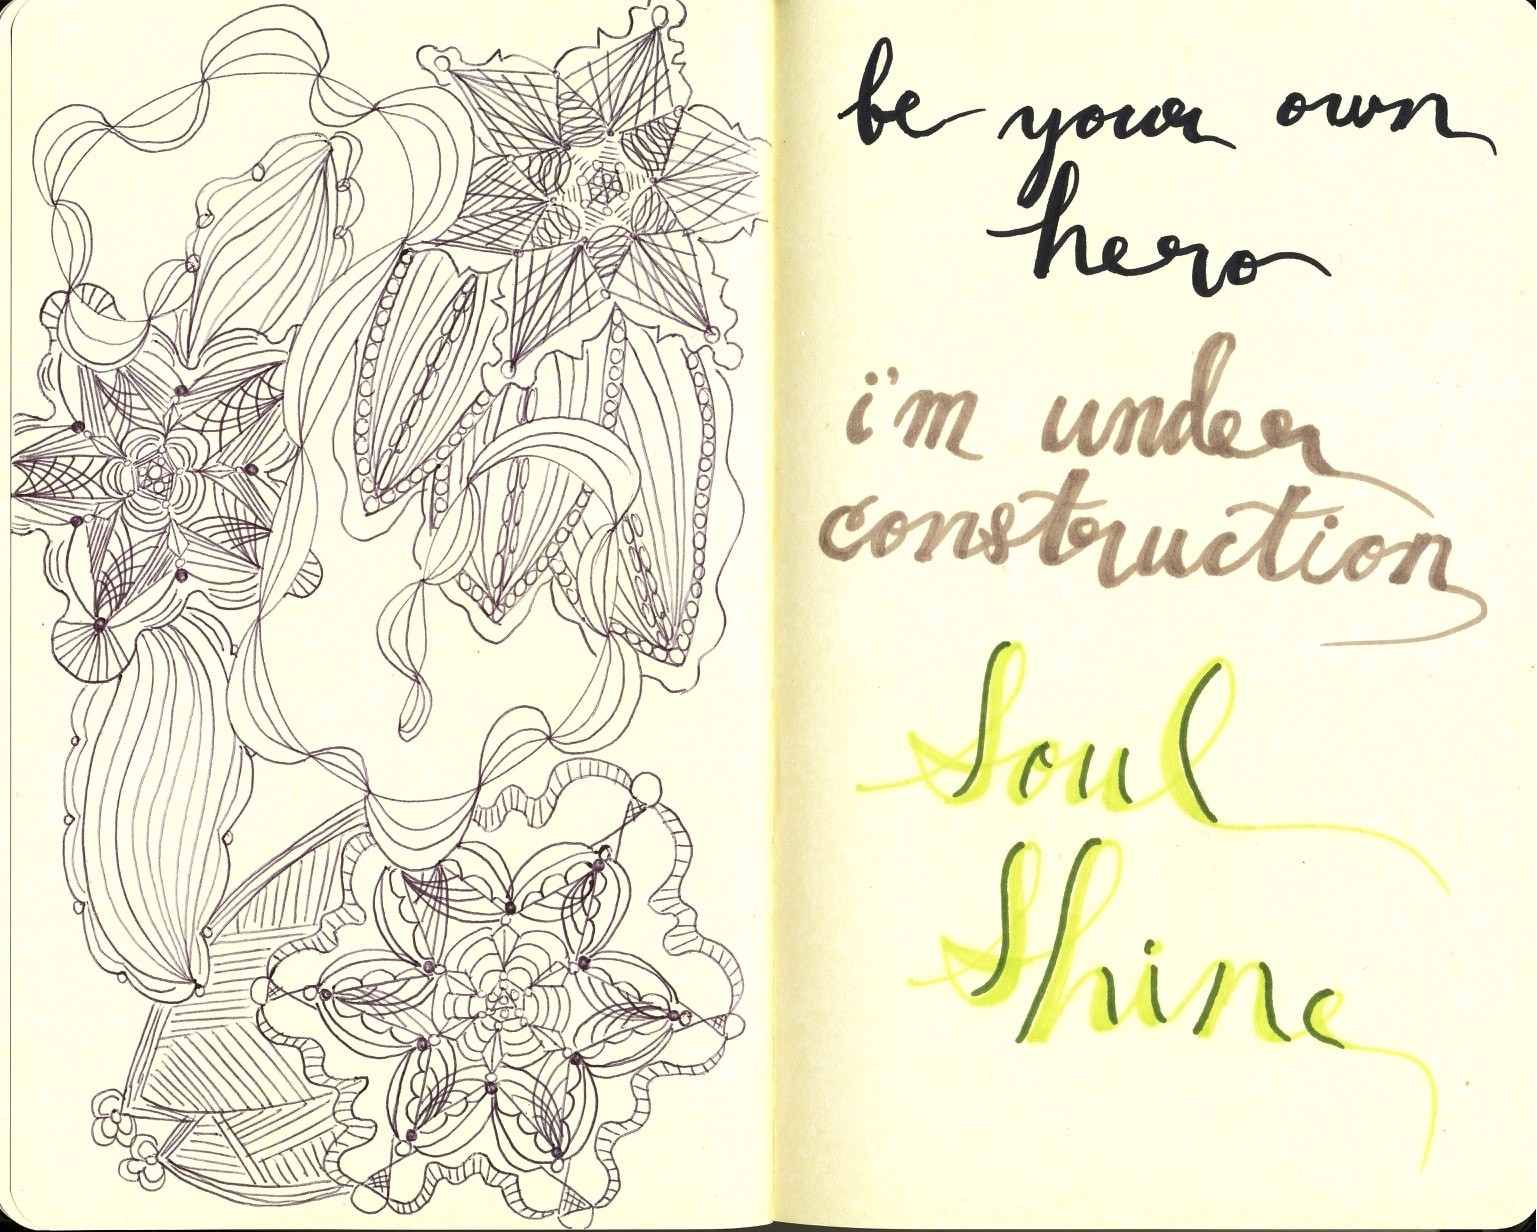 be your own
hero
i'm under
construction
Soul
Shine